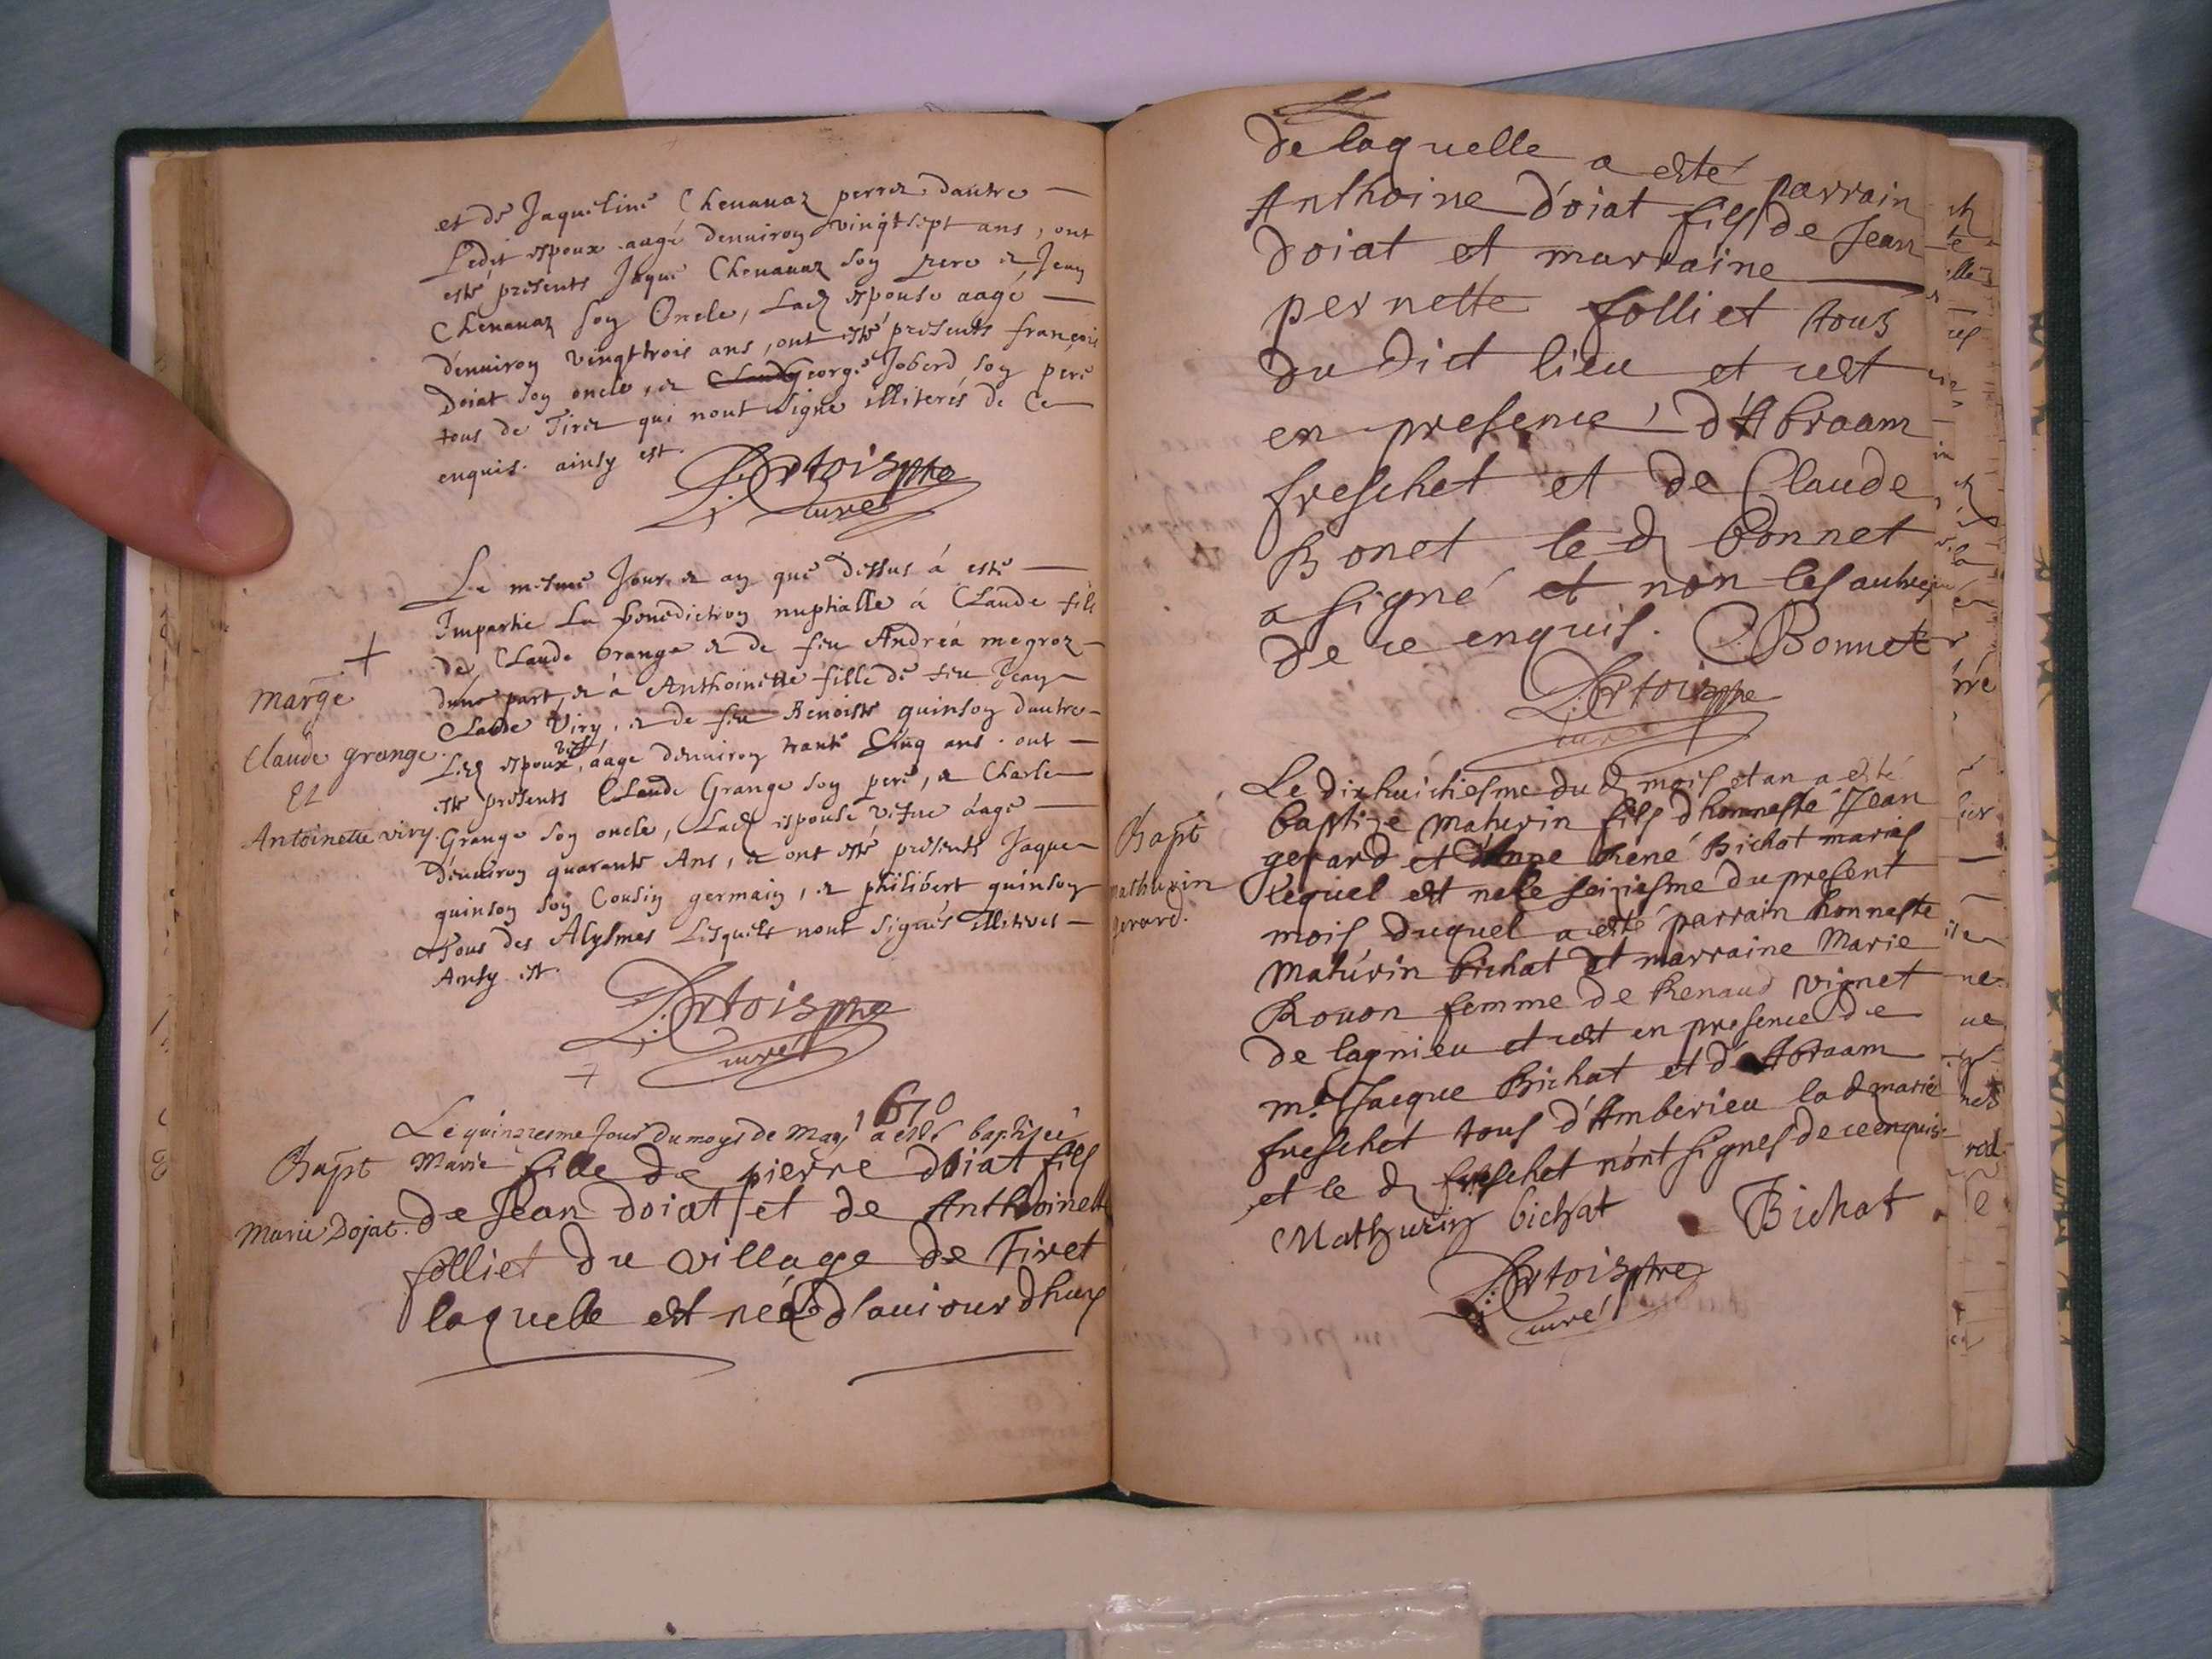 et de Jaqueline Chenauaz perrez dautre
Ledit espoux aagé denuiron vingt sept ans, ont
esté presents Jaque Chenauaz son pere et Jean
Chenauaz son Oncle, Lad espouse aagé
d'enuiron vingt trois ans, ont esté presents françois
Doiat son oncle, et George Joberd son pere
tous de Tiret qui nont signe illiterés de Ce
enquis. ainsy est.
Dortois ptre
curé
Le mesme Jour et an que dessus à esté
Impartie La benediction nuptialle à Claude fils
de Claude Grange et de feu Andréa megroz
dune part, et à Anthoinette fille de feu Jean
Claude Viry, et de feu Benoiste quinson dautre
Led espoux vef, aage denuiron trante Cinq ans. ont
esté presents Claude Grange son pere, et Charle
Grange son oncle, Lad espouse vefue aagé
d'enuiron quarante Ans, et ont esté presents Jaque
quinson son Cousin germain, et philibert quinson
tous des Alysmes Lesquels nont signés illiteres
Ainsy est.
Dortois ptre
curé
+
marge
Claude grange
Et
Antoinette viry.
1670
Le quinzeesme Jour du moys de may, a esté baptisée
Marie fille de pierre doiat fils
de Jean doiat et de Anthoinette
folliet du village de Tiret
laquelle est née daujourdhuy
Bapt
Marie Dojat.
de laquelle a esté parrain
Anthoine doiat fils de Jean
doiat et marraine
pernette folliet tous
du dict lieu et cest
en presence d'Abraam
freschet et de Claude
Bonet le d bonnet
a signé et non les autres
de ce enquis. CBonnet
Dortois ptre
curé
Le dixhuictiesme du d mois et an a esté
baptize maturin fils d honneste Jean
gerard et d'Anne René Bichat mariés
lequel est ne le seiziesme du present
mois duquel a esté parrain honneste
maturin bichat et marraine Marie
Rouon femme de Renaud vignet
de lagnieu et cest en presence de
mr Jacque Bichat et d'Abraam
freschet tous d'Amberieu la d marie
et le d freschet n'ont signes de ce enquis
Mathurin bichat Bichat
Dortois ptre
curé
Bapt
mathurin
gerard.